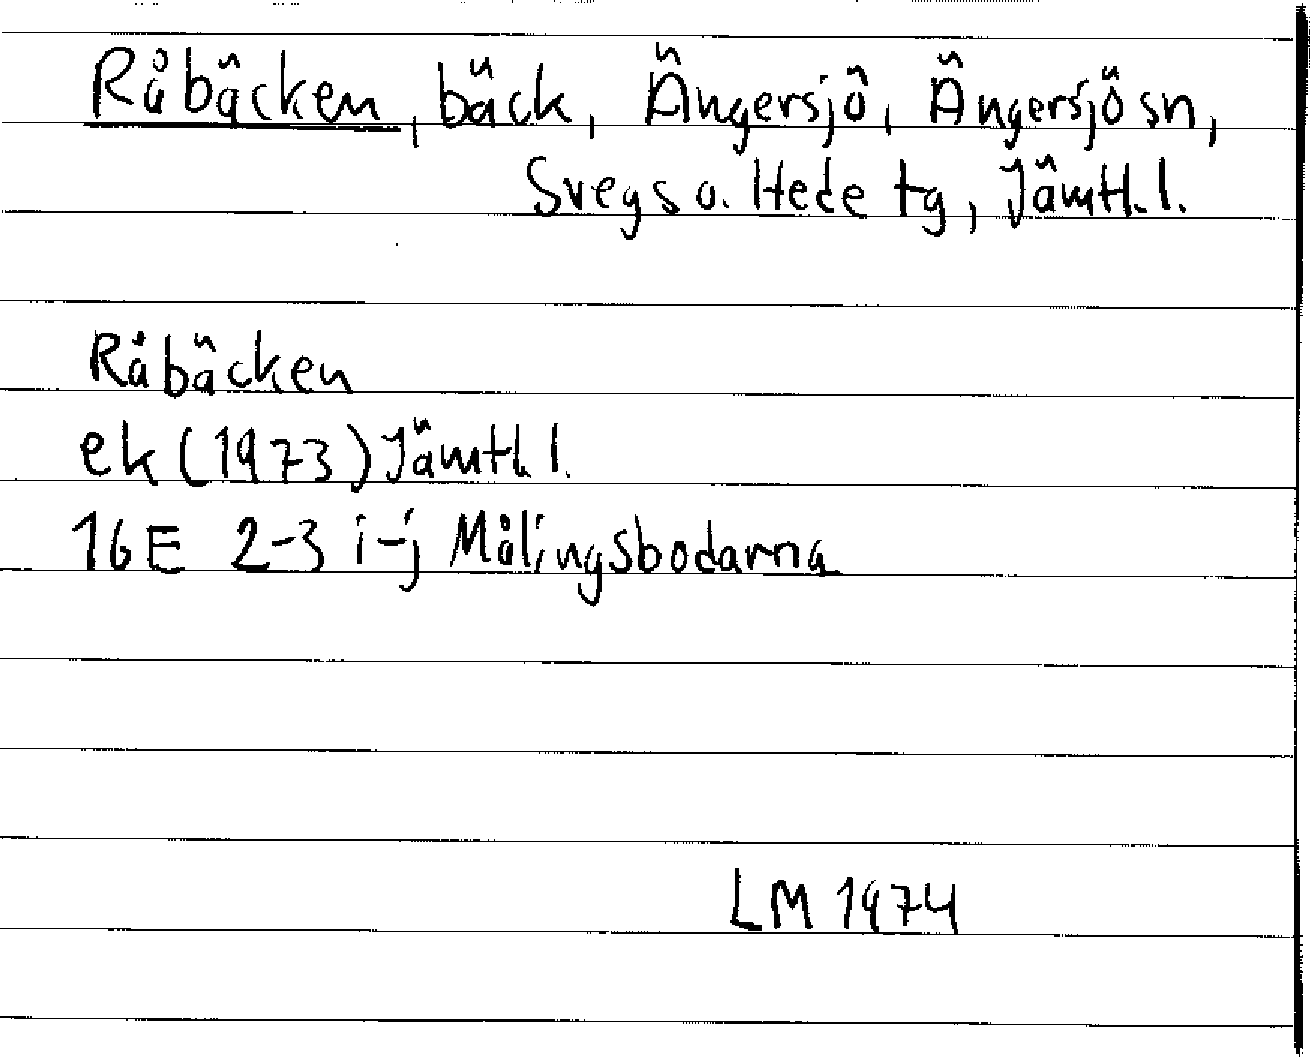 Råbäcken, bäck, Ängersjö, Ängersjö sn,
Svegs o. Hede tg, Jämtl. l.
Råbäcken
ek (1973) Jämtl. l.
16E 2-3 i-j Målingsbodarna
LM 1974